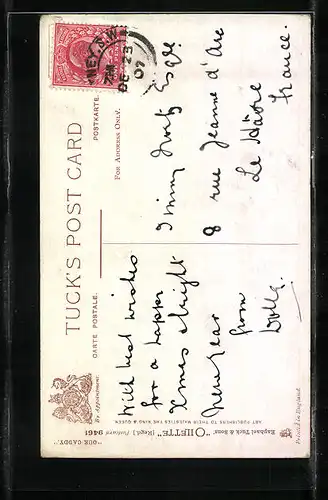 TUCK'S POST CARD
CARTE POSTALE.
POSTKARTE.
FOR ADDRESS ONLY.
By Appointment.
DE 23
07
With best wishes
for a happy
Xmas & bright
New Year
from
Esqre
8 rue Jeanne d'Arc
Le Hâvre
France.
Raphael Tuck & Sons' "OILETTE" [Regd.] Postcard 9461
"OUR CADDY."
ART PUBLISHERS TO THEIR MAJESTIES THE KING & QUEEN
Printed in England.